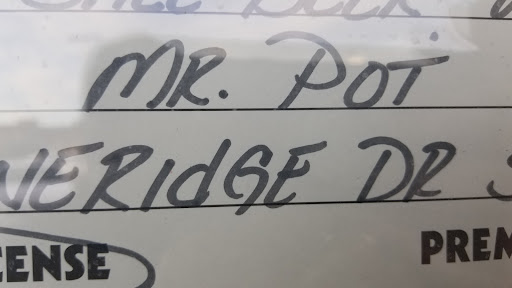 MR. POT
NERIdGE DR
CENSE PREM